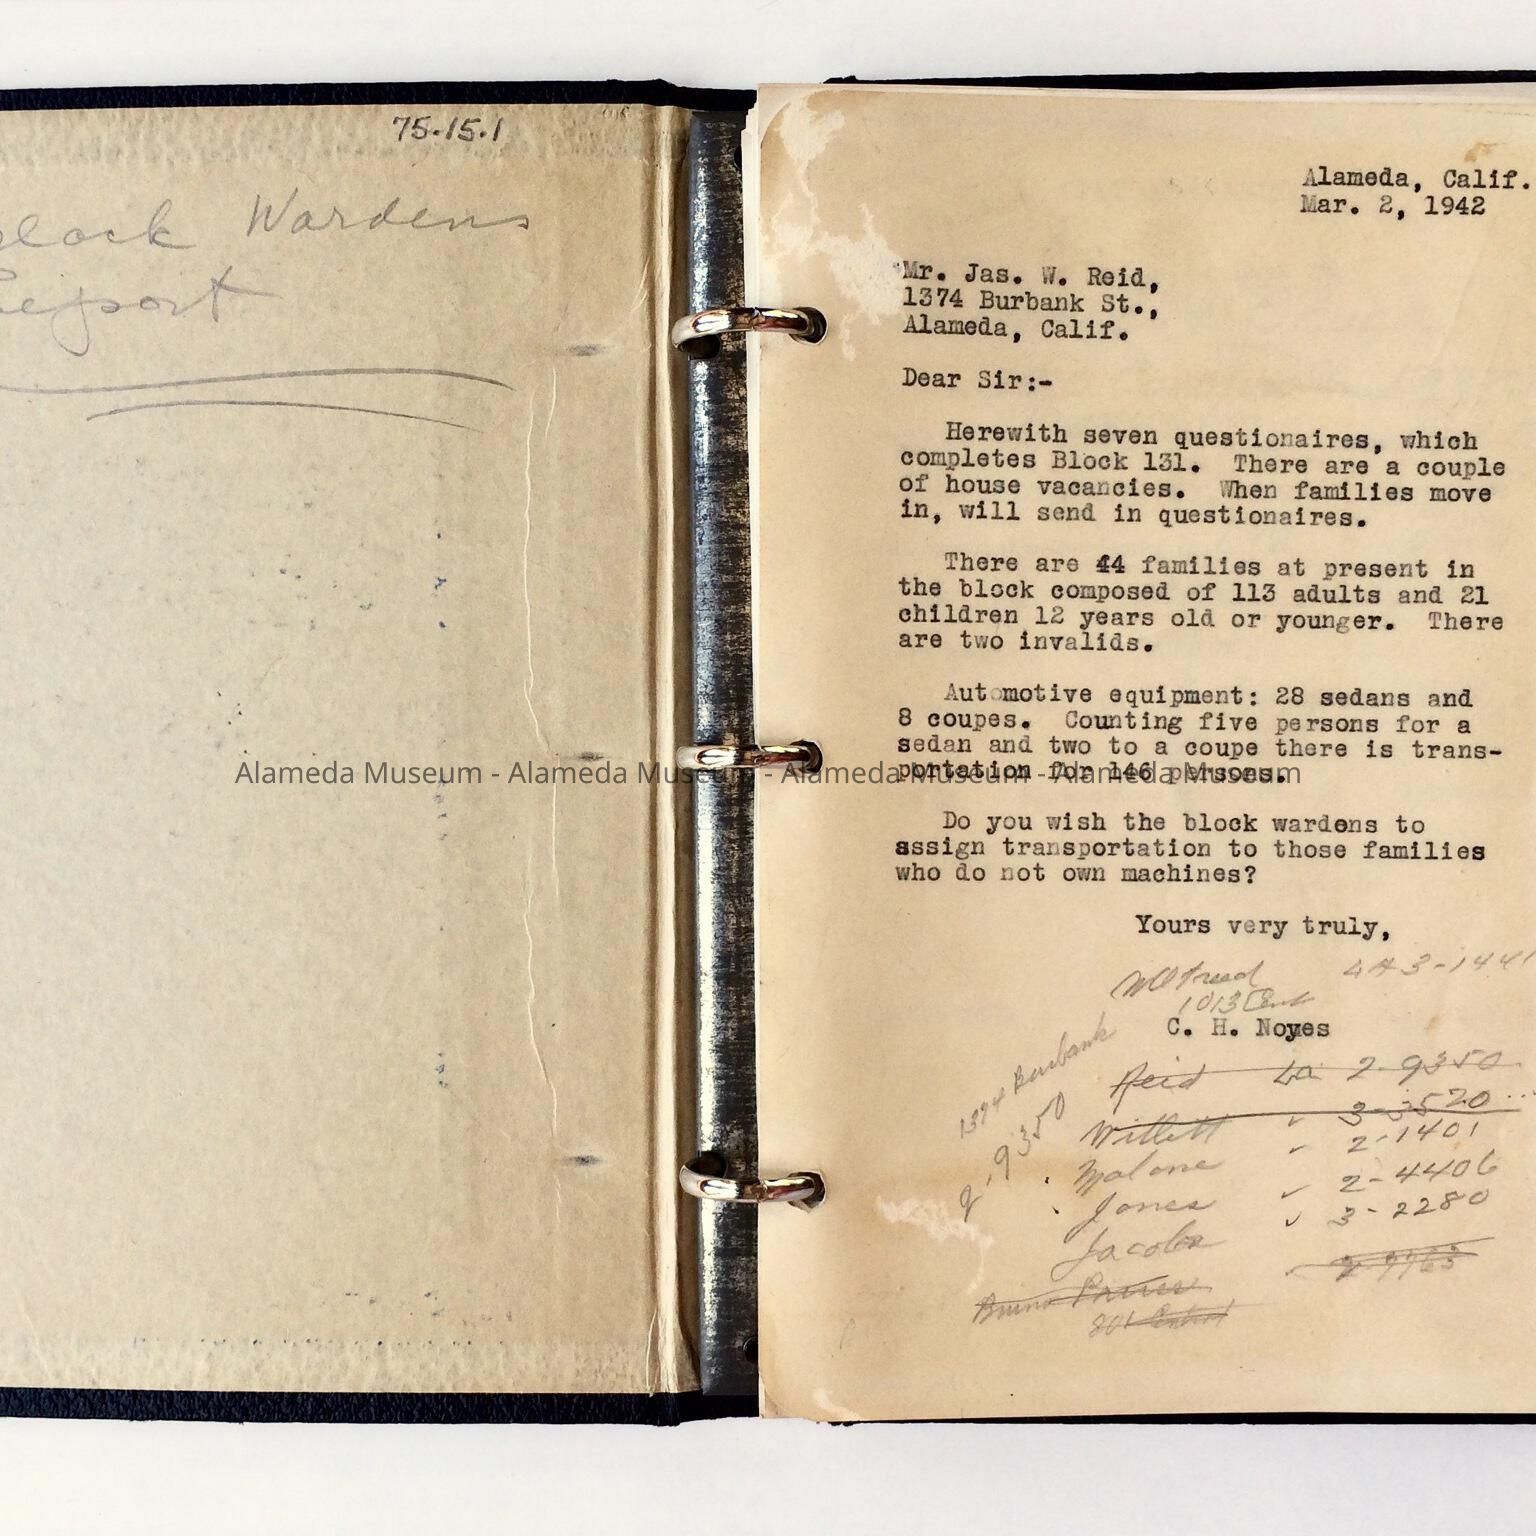 75.15.1
Block Wardens
Report
Alameda, Calif.
Mar. 2, 1942
Mr. Jas. W. Reid,
1374 Burbank St.,
Alameda, Calif.
Dear Sir:-
Herewith seven questionaires, which
completes Block 131. There are a couple
of house vacancies. When families move
in, will send in questionaires.
There are 44 families at present in
the block composed of 113 adults and 21
children 12 years old or younger. There
are two invalids.
Automotive equipment: 28 sedans and
8 coupes. Counting five persons for a
sedan and two to a coupe there is trans-
portation for 146 persons.
Alameda Museum - Alameda Museum - Alameda Museum - Alameda Museum
Do you wish the block wardens to
assign transportation to those families
who do not own machines?
Yours very truly,
1013 Cent
C. H. Noyes
1374 Burbank
2-9350
Reid La 2-9350
Willett " 3-3520
Malone " 2-1401
Jones 2-4406
Jacobs 3-2280
801 Central